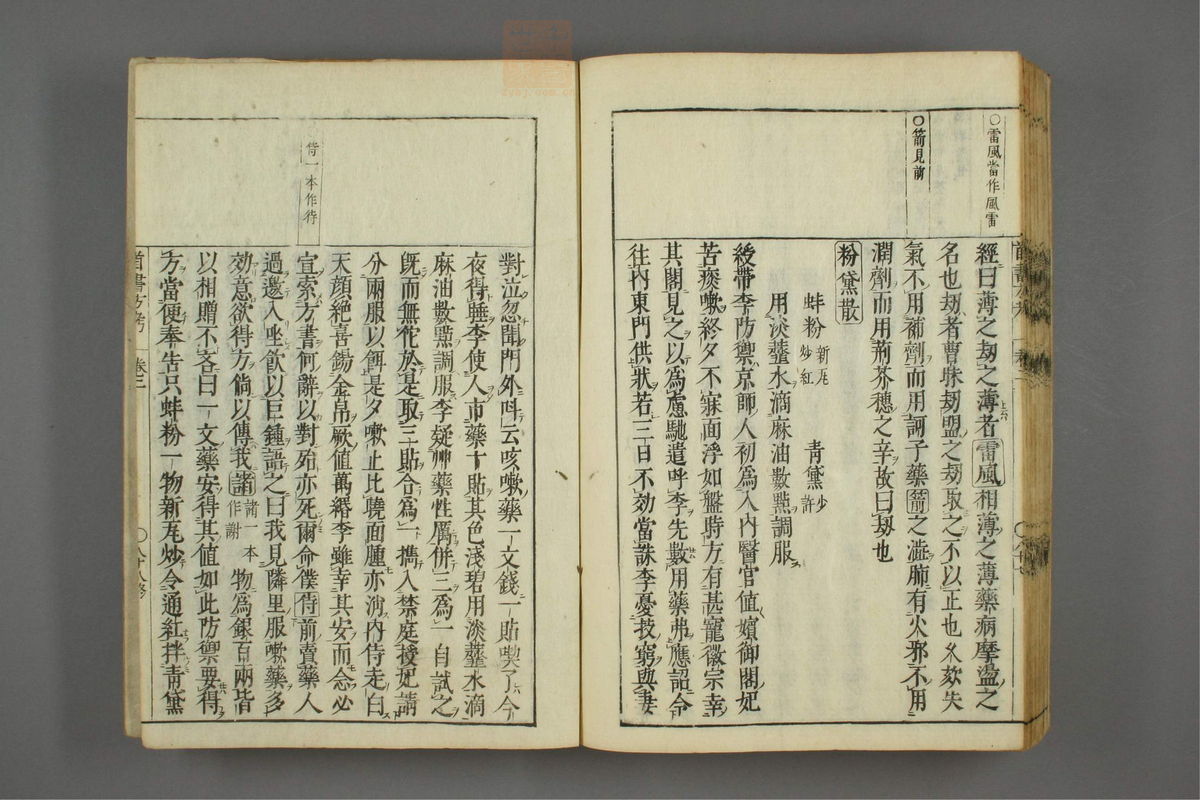 ○雷風當作風雷
○箭見前
經曰薄之劫之薄者雷風相薄之薄藥病摩盪之
名也劫者曹昧劫盟之劫取之不以正也久欬失
氣不用補劑而用訶子藥箭之澁肺有火邪不用
潤劑而用荊芥穗之辛故曰刼也
粉黛散
蚌粉新瓦炒紅 青黛少許
用淡虀水滴麻油數點調服
綬帶李防禦京師人初爲入內醫官值嬪御閣妃
苦痰嗽終夕不寐面浮如盤時方有甚寵徽宗幸
其閣見之以爲慮馳遣呼李先數用藥弗應詔令
往內東門供狀若三日不効當誅李憂技窮與妻
侍一本作待
對泣忽聞門外呌云咳嗽藥一文錢一貼喫了今
夜得睡李使人市藥十貼其色淺碧用淡虀水滴
麻油數點調服李疑艸藥性厲併三爲一自試之
旣而無佗於是取三貼合爲一攜入禁庭授妃請
分兩服以餌是夕嗽止比曉面腫亦消內侍走白
天顏絕喜錫金帛厥值萬緡李雖幸其安而念必
宣索方書何辭以對殆亦死爾命僕侍前賣藥人
過邀入坐飮以巨鍾語之曰我見隣里服嗽藥多
効意欲得方倘以傳我諸諸一本作謝物爲銀百兩皆
以相贈不吝曰一文藥安得其值如此防禦要得
方當便奉告只蚌粉一物新瓦炒令通紅拌青黛
首書方考 卷三 ○八十八